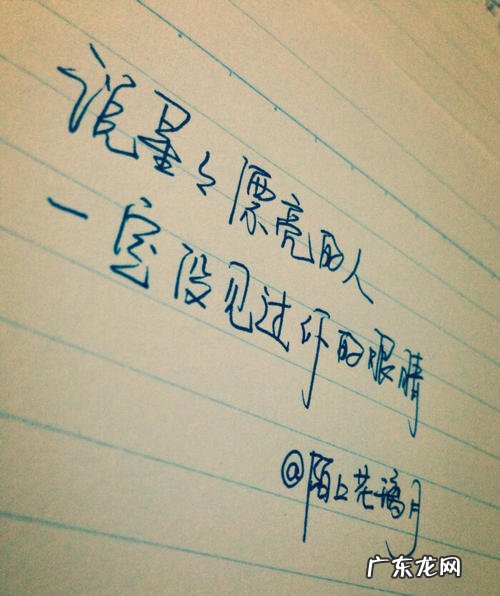 说星星漂亮的人
一定没见过你的眼睛
@陌上花璃月
广东龙网